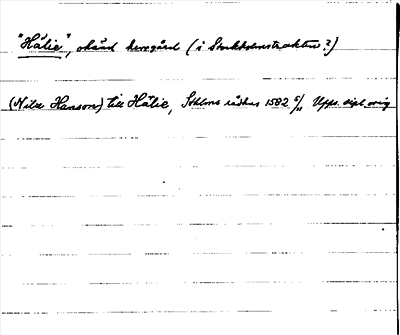 "Hålie", okänd herrgård (i Stockholmstrakten?)
(Nils Hanson) till Hålie, Sthlms rådhus 1582 5/11 Upps. dipl. orig